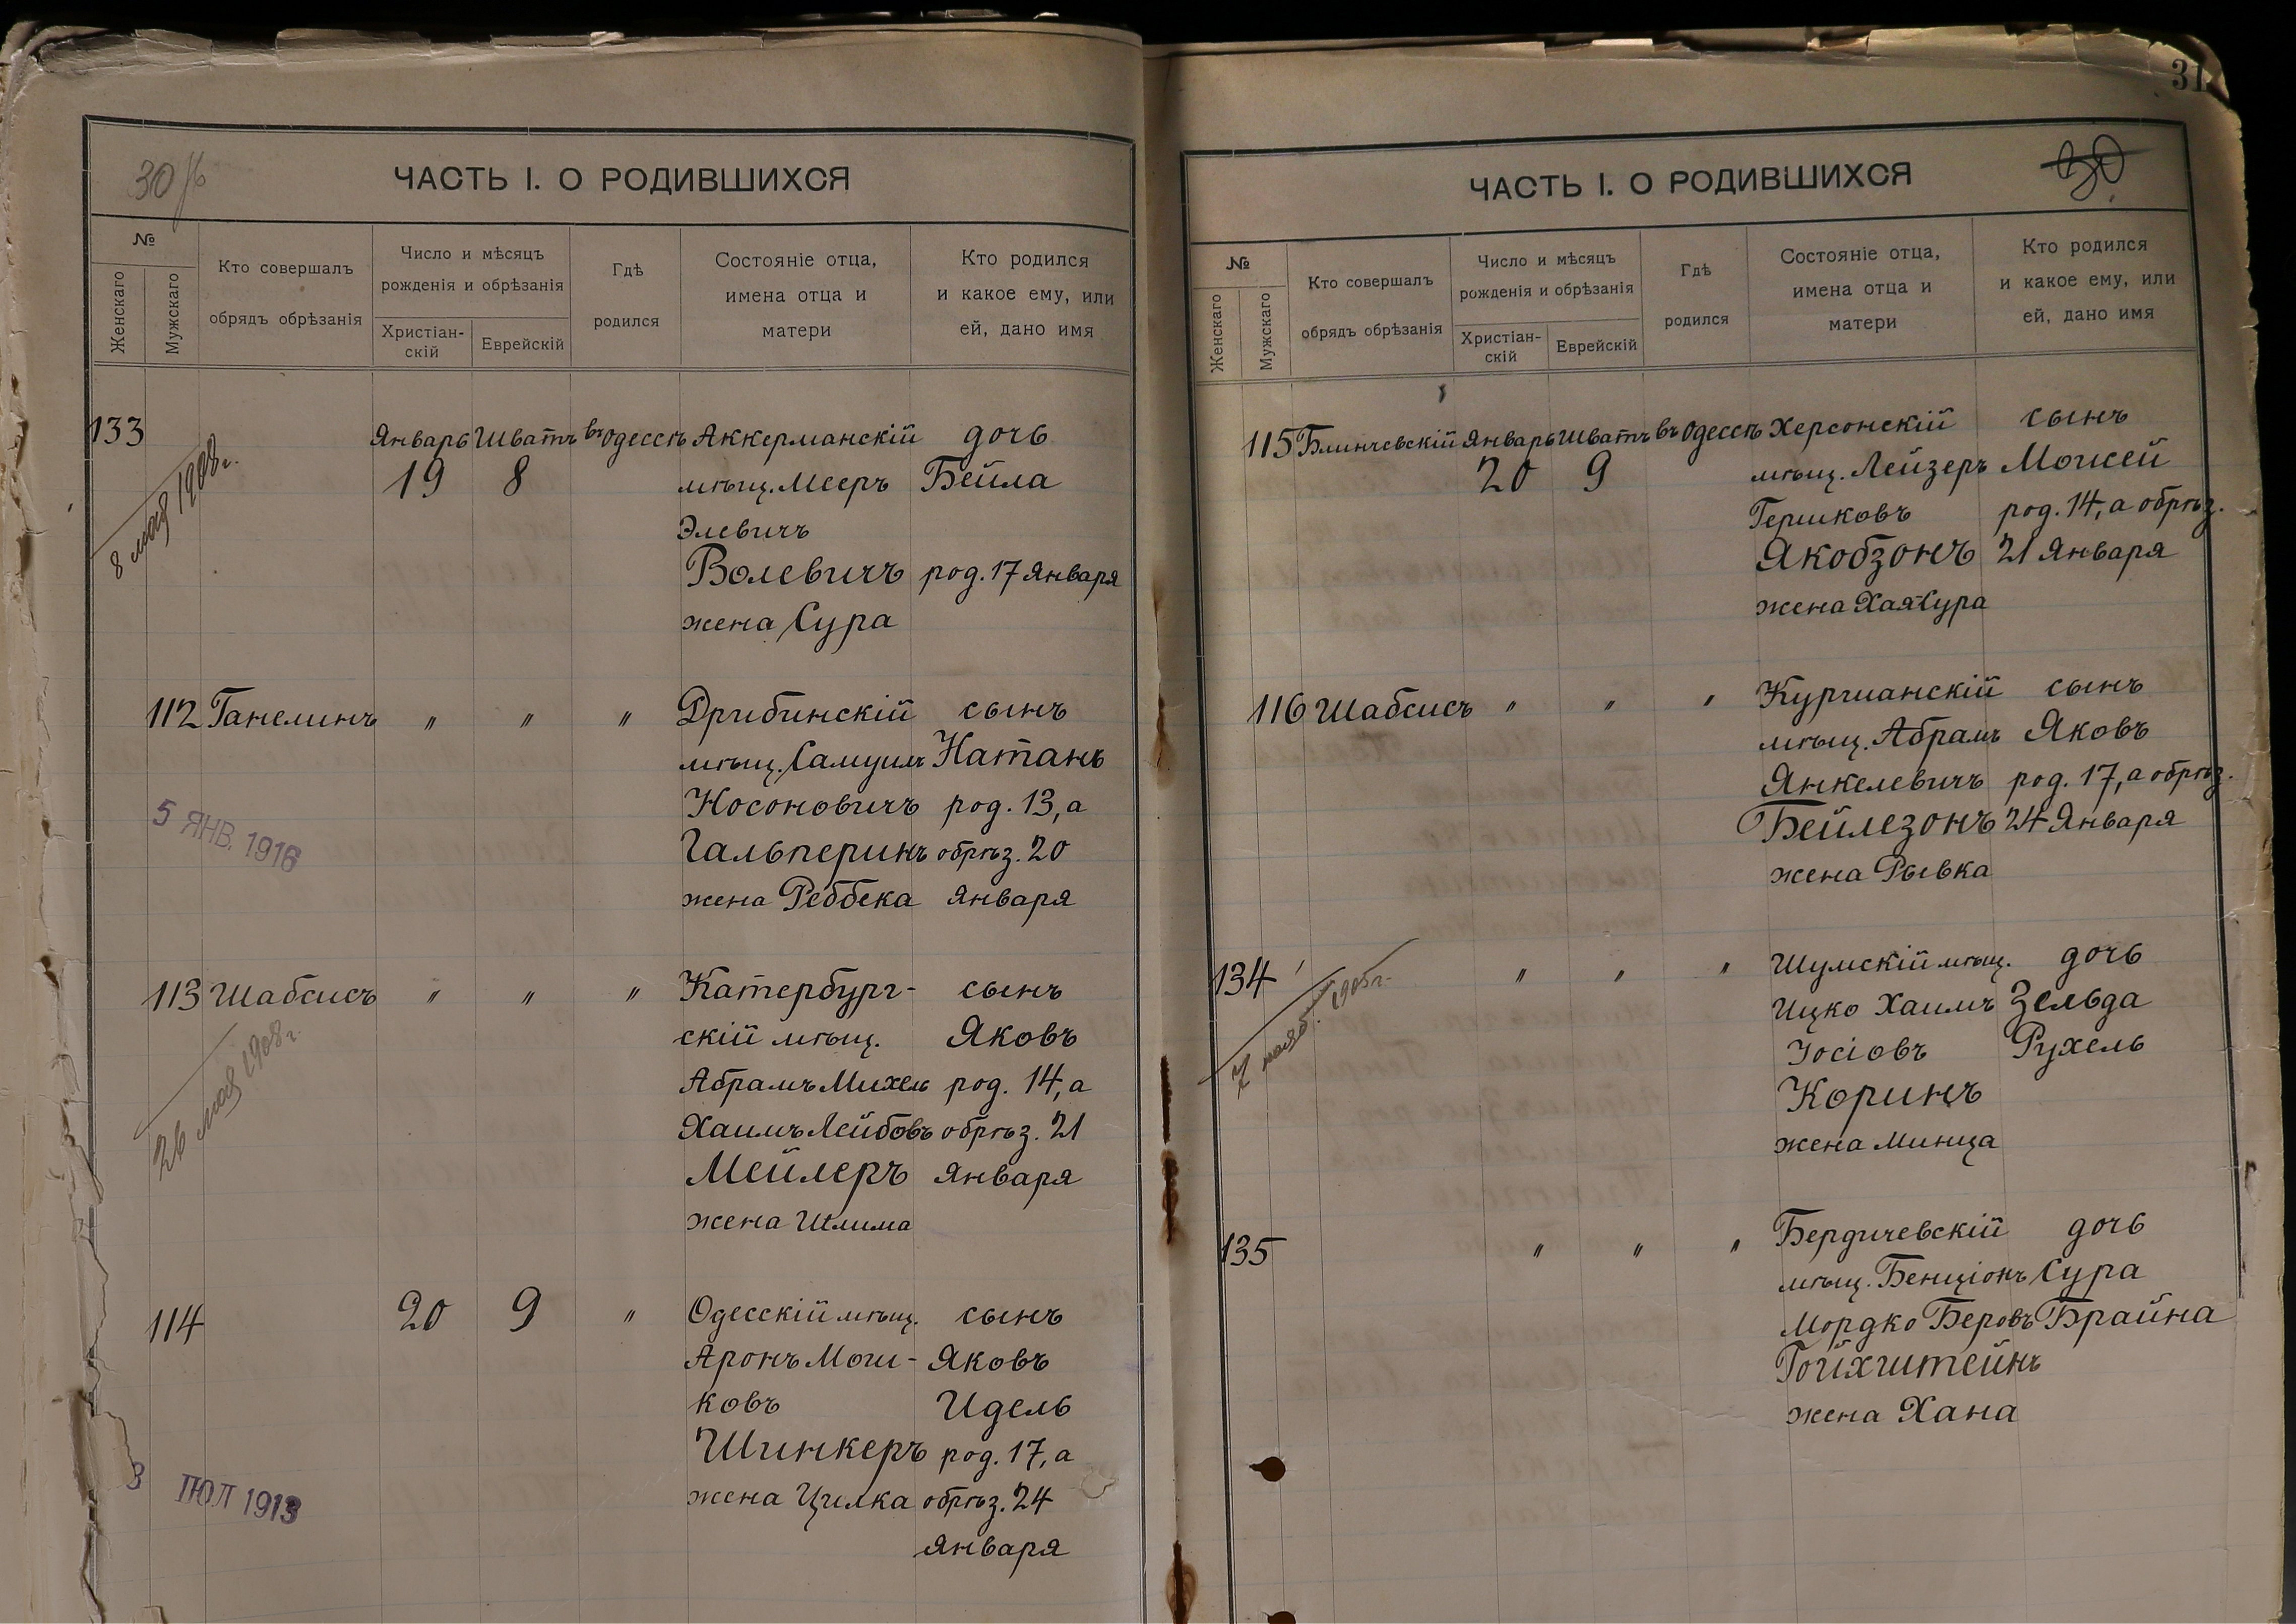 30 об
ЧАСТЬ I. О РОДИВШИХСЯ
№
Женскаго
Мужскаго
Кто совершалъ
обрядъ обрѣзанія
Число и мѣсяцъ
рожденія и обрѣзанія
Христіан-
скій
Еврейскій
Гдѣ
родился
Состояніе отца,
имена отца и
матери
Кто родился
и какое ему, или
ей, дано имя
133 Январь Шватъ въ Одессѣ Аккерманскій дочь
19 8 мѣщ. Мееръ Бейла
Элевичъ
Волевичъ род. 17 Января
жена Сура
8 мая 1908 г.
112 Ганелинъ " " " Дрибинскій сынъ
мѣщ. Самуилъ Натанъ
Носоновичъ род. 13, а
Гальперинъ обрѣз. 20
жена Реббека Января
5 ЯНВ. 1916
113 Шабсисъ " " " Катербург- сынъ
скій мѣщ. Яковъ
Абрамъ Михель род. 14, а
Хаимъ Лейбовъ обрѣз. 21
Мейлеръ Января
жена Шлима
26 мая 1908 г.
114 20 9 " Одесскій мѣщ. сынъ
Аронъ Мош- Яковъ
ковъ Идель
Шинкеръ род. 17, а
жена Цилка обрѣз. 24
Января
3 ІЮЛ 1913
31
ЧАСТЬ I. О РОДИВШИХСЯ
30
№
Женскаго
Мужскаго
Кто совершалъ
обрядъ обрѣзанія
Число и мѣсяцъ
рожденія и обрѣзанія
Христіан-
скій
Еврейскій
Гдѣ
родился
Состояніе отца,
имена отца и
матери
Кто родился
и какое ему, или
ей, дано имя
115 Блинчевскій Январь Шватъ въ Одессѣ Херсонскій сынъ
20 9 мѣщ. Лейзеръ Моисей
Гершковъ род. 14, а обрѣз.
Якобзонъ 21 Января
жена Хая Сура
116 Шабсисъ " " " Купшанскій сынъ
мѣщ. Абрамъ Яковъ
Янкелевичъ род. 17, а обрѣз.
Бейлезонъ 24 Января
жена Рывка
134 " " " Шумскій мѣщ. дочь
Ицко Хаимъ Зельда
Іосіовъ Рухель
Коринъ
жена Минца
7 нояб. 1905 г.
135 " " " Бердичевскій дочь
мѣщ. Бенціонъ Сура
Мордко Беровъ Брайна
Гойхштейнъ
жена Хана